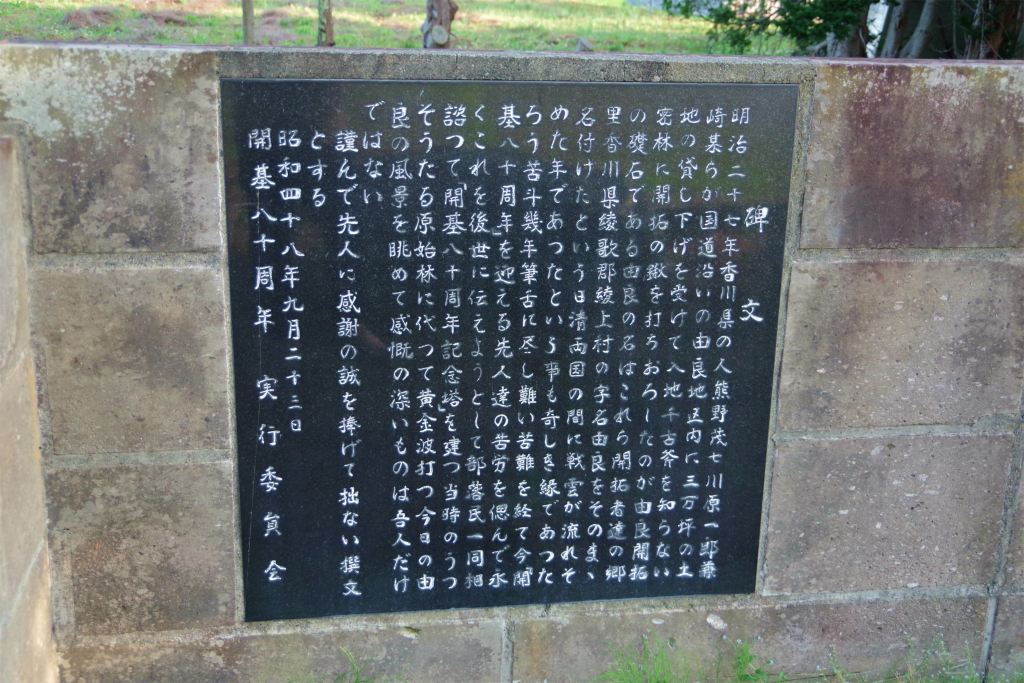 碑文
明治二十七年香川県の人熊野茂七川原一郎兼
崎基らが国道沿いの由良地区内に三万坪の土
地の貸し下げを受けて入地千古斧を知らない
密林に開拓の鍬を打ちおろしたのが由良開拓
の礎石である由良の名はこれら開拓者達の郷
里香川県綾歌郡綾上村の字名由良をそのまゝ
名付けたという日清両国の間に戦雲が流れそ
めた年であつたという事も奇しき縁であつた
ろう苦斗幾年筆舌に尽し難い苦難を経て今「開
基八十周年」を迎える先人達の苦労を偲んで永
くこれを後世に伝えようとして部落民一同相
諮つて「開基八十周年記念塔」を建つ当時のうつ
そうたる原始林に代つて黄金波打つ今日の由
良の風景を眺めて感慨の深いものは吾人だけ
ではない
謹んで先人に感謝の誠を捧げて拙ない撰文
とする
昭和四十八年九月二十三日
開基八十周年実行委員会